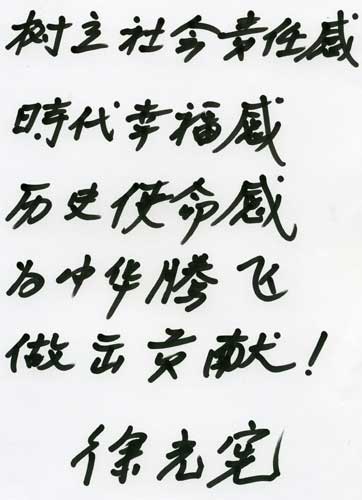 树立社会责任感
時代幸福感
历史使命感
为中华腾飞
做出贡献！
徐光宪